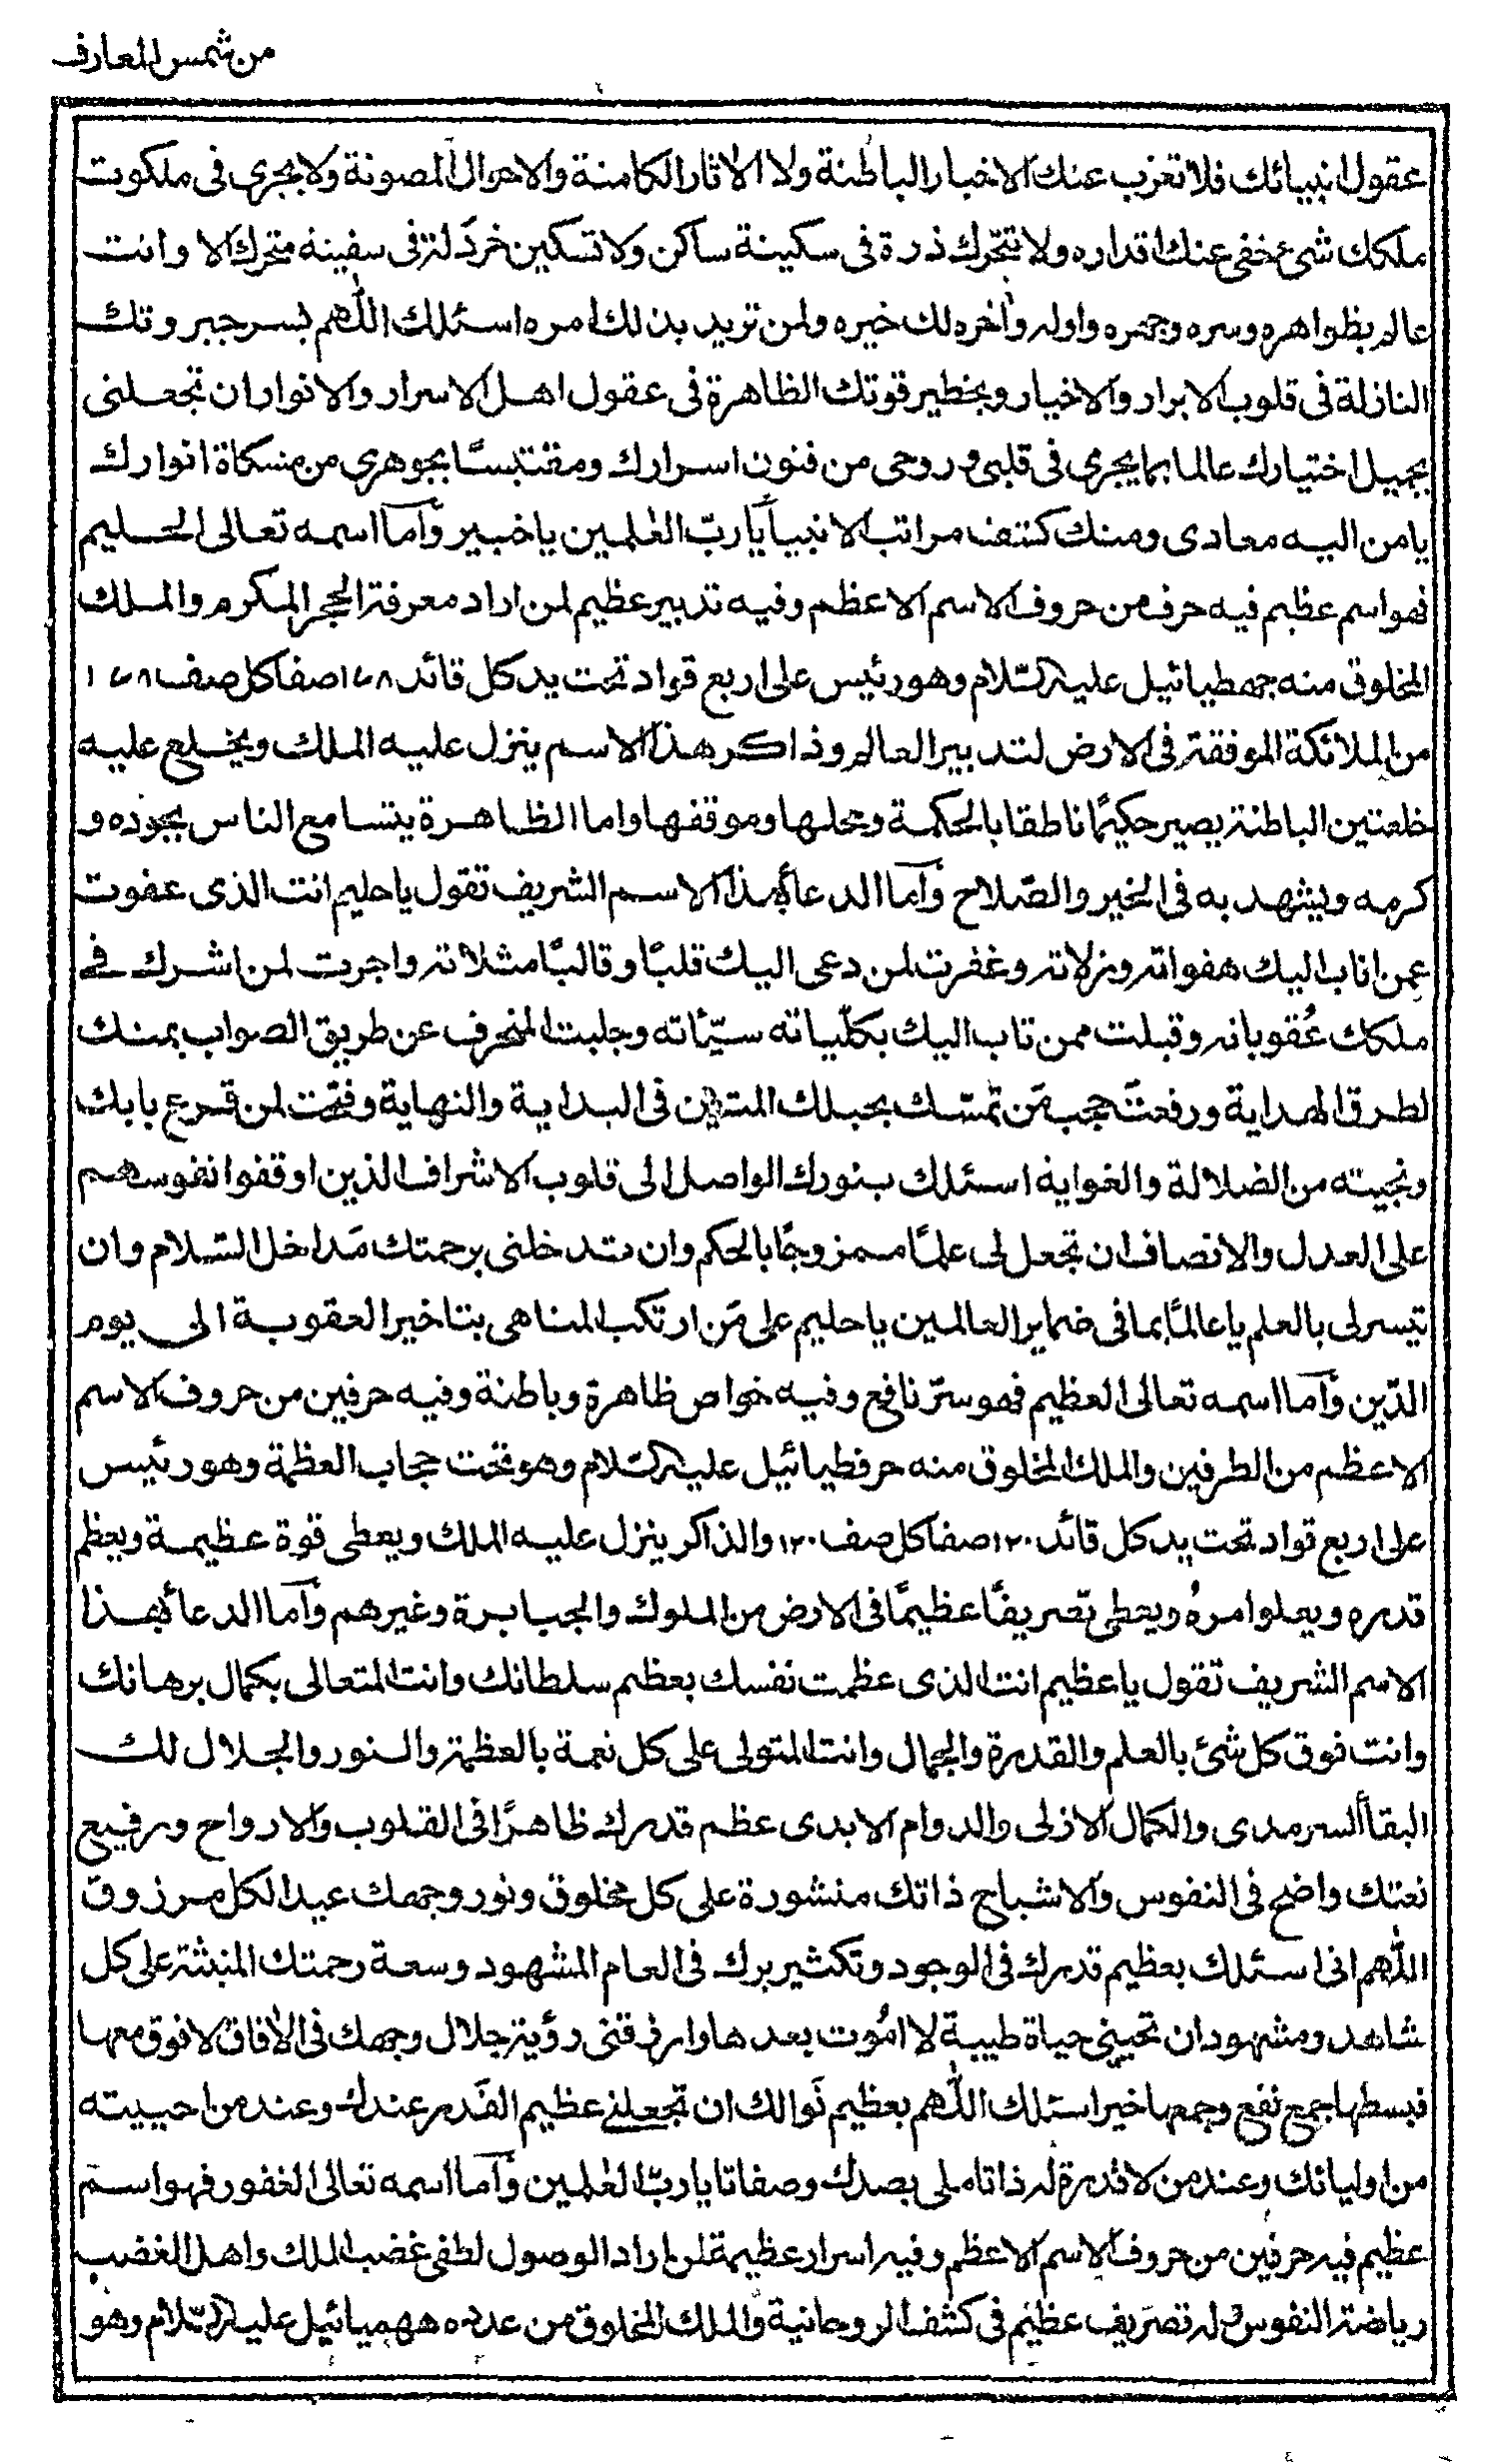 من شمس المعارف
عقول انبيائك فلا تغرب عنك الاخبار الباطنة ولا الاثار الكامنة والاحوال المصونة ولا يجرى فى ملكوت
ملكك شئ خفى عنك اقداره ولا تتحرك ذرة فى سكينة ساكن ولا تسكين خردلة فى سفينة متحرك الا وانت
عالم بظواهره وسره وجهره واوله وأخره لك خيره ولمن تريد بذلك امره اسئلك اللهم بسر جبروتك
النازلة فى قلوب الابرار والاخيار وبخطير قوتك الظاهرة فى عقول اهل الاسرار والانوار ان تجعلنى
بجميل اختيارك عالما بما يجرى فى قلبى وروحى من فنون اسرارك ومقتبسًا بجوهرى من مسكاة انوارك
يا من اليه معادى ومنك كشف مراتب الانبيأ يا ربّ العلمين يا خبير وآما اسمه تعالى الحليم
فهو اسم عظيم فيه حرف من حروف الاسم الاعظم وفيه تدبير عظيم لمن اراد معرفة الحجر المكرم والملك
المخلوق منه جهطيائيل عليه السّلام وهو رئيس على اربع قواد تحت يد كل قائد ١٧٨ صفا كل صف ١٧٨
من الملائكة الموفقة فى الارض لتدبير العالم وذاكر هذا الاسم ينزل عليه الملك ويخلع عليه
خلعتين الباطنة يصير حكيمًا ناطقا بالحكمة ومحلها وموقفها واما الظاهرة يتسامع الناس بجوده و
كرمه ويشهد به فى الخير والصّلاح وآما الدعأ بهذا الاسم الشريف تقول يا حليم انت الذى عفوت
عمن اناب اليك هفواته وزلاته وغفرت لمن دعى اليك قلبًا وقالبًا مثلاته واجريت لمن اشرك فى
ملكك عُقوباته وقبلت ممن تاب اليك بكلّياته سيّئاته وجلبت المنحرف عن طريق الصواب بمنك
لطرق الهداية ورفعت حجب مَن تمسّك بحبلك المتين فى البداية والنهاية وفتحت لمن قرع بابك
ونجيته من الضلالة والغواية اسئلك بنورك الواصل الى قلوب الاشراف الذين اوقفوا نفوسهم
على العدل والانصاف ان تجعل لى علمًا ممزوجًا بالحكم وان تدخلنى برحمتك مَداخل السّلام وان
تيسر لى بالعلم يا عالمًا بما فى ضماير العالمين يا حليم على مَن ارتكب المناهى بتاخير العقوبة الى يوم
الدّين وآما اسمه تعالى العظيم فهو سرّ نافع وفيه خواص ظاهرة وباطنة وفيه حرفين من حروف الاسم
الاعظم من الطرفين والملك المخلوق منه حرفطيائيل عليه السّلام وهو تحت حجاب العظمة وهو رئيس
على اربع قواد تحت يد كل قائد ١٢٠ صفا كل صف ١٢٠ والذاكر ينزل عليه الملك ويعطى قوة عظيمة ويعظم
قدره ويعلو امرهُ ويعطى تصريفًا عظيمًا فى الارض من الملوك والجبابرة وغيرهم وآما الدعأ بهذا
الاسم الشريف تقول يا عظيم انت الذى عظمت نفسك بعظيم سلطانك وانت المتعالى بكمال برهانك
وانت فوق كل شئ بالعلم والقدرة والجمال وانت المتولى على كل نيمة بالعظمة والنور والجلال لك
البقأ السرمدى والكمال الازلى والدوام الابدى عظم قدرك ظاهرًا فى القلوب والارواح ورفيع
نعتك واضح فى النفوس والاشباح ذاتك منشورة على كل مخلوق ونور وجهك عيد الكل مرزوق
اللهم انى اسئلك بعظيم قدرك فى الوجود وتكثير برك فى العام المشهود وسعة رحمتك المنبثة على كل
شاهد ومشهود ان تحيينى حياة طيبة لا امُوت بعدها وارزقنى رؤية جلال وجهك فى الأفاق لا فوق معها
فبسطها جمع نفع وجمعها خير اسئلك اللهم بعظيم نَوالك ان تجعلنى عظيم القَدر عندك وعند من احببيته
من اوليائك وعند من لا قدرة له ذاتا ملى بصدك وصفاتا يا ربّ العلمين وآما اسمه تعالى الغفور فهو اسم
عظيم فيه حرفين من حروف الاسم الاعظم وفيه اسرار عظيمة لمن اراد الوصول لطفى غضب الملك واهل الغضب
رياضة النفوس وله تصريف عظيم فى كشف الروحانية والملك المخلوق من عدده ههميائيل عليه السّلام وهو